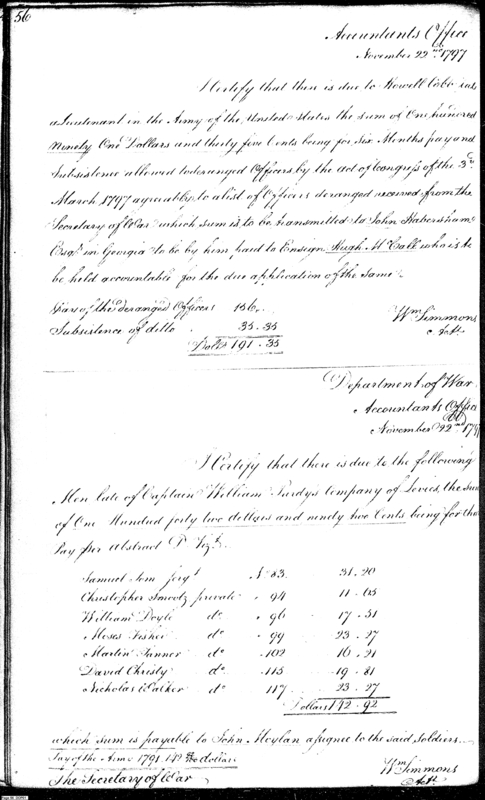 56
Accountants Office
November 22nd 1797
I Certify that there is due to Howell Cobb late
a Lieutenant in the Army of the United States the sum of One hundred
Ninety One Dollars and thirty five Cents being for Six Months pay and
Subsistence allowed to deranged Officers by the act of Congress of the 3d
March 1797 agreeably to a list of Officers deranged received from the
Secretary of War which sum is to be transmitted to John Habersham
Esqr in Georgia to be by him paid to Ensign Hugh McCall who is to
be held accountable for the due application of the same
Pay of the deranged Officers 156..
Subsistence of ditto 35.35
Dolls 191.35
Wm Simmons
Actt
Department of War
Accountants Office
November 22nd 1797
I Certify that there is due to the following
Men late of Captain William Purdy's Company of Levies, the sum
of One Hundred forty two dollars and ninety two Cents being for their
Pay per Abstract Vizt
Samuel Tom sergt No 83 31.20
Christopher Smootz private 94 11.65
William Doyle do 96 17.51
Moses Fisher do 99 23.27
Martin Tanner do 102 16.21
David Christy do 115 19.81
Nicholas Walker do 117 23.27
Dollars 142.92
which sum is payable to John Moylan assignee to the said Soldiers
Pay of the Army 1791 142 92/100 dollars
The Secretary of War
Wm Simmons
Actt